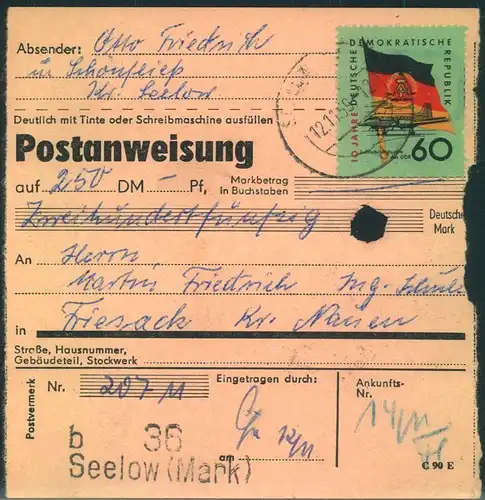 Absender: Otto Friedrich
in Schönfließ
Kr. Seelow
10 JAHRE DEUTSCHE DEMOKRATISCHE REPUBLIK
60
12.11.59
Deutlich mit Tinte oder Schreibmaschine ausfüllen
Postanweisung
auf 250 DM – Pf, Markbetrag in Buchstaben
Zweihundertfünfzig Deutsche Mark
An Herrn
Martin Friedrich Ing. Schule
in Friesack Kr. Nauen
Straße, Hausnummer,
Gebäudeteil, Stockwerk
Postvermerk
Nr. 207 11
Eingetragen durch:
Ankunfts-
Nr.
am 12/11
14/11
b 36
Seelow (Mark)
C 90 E